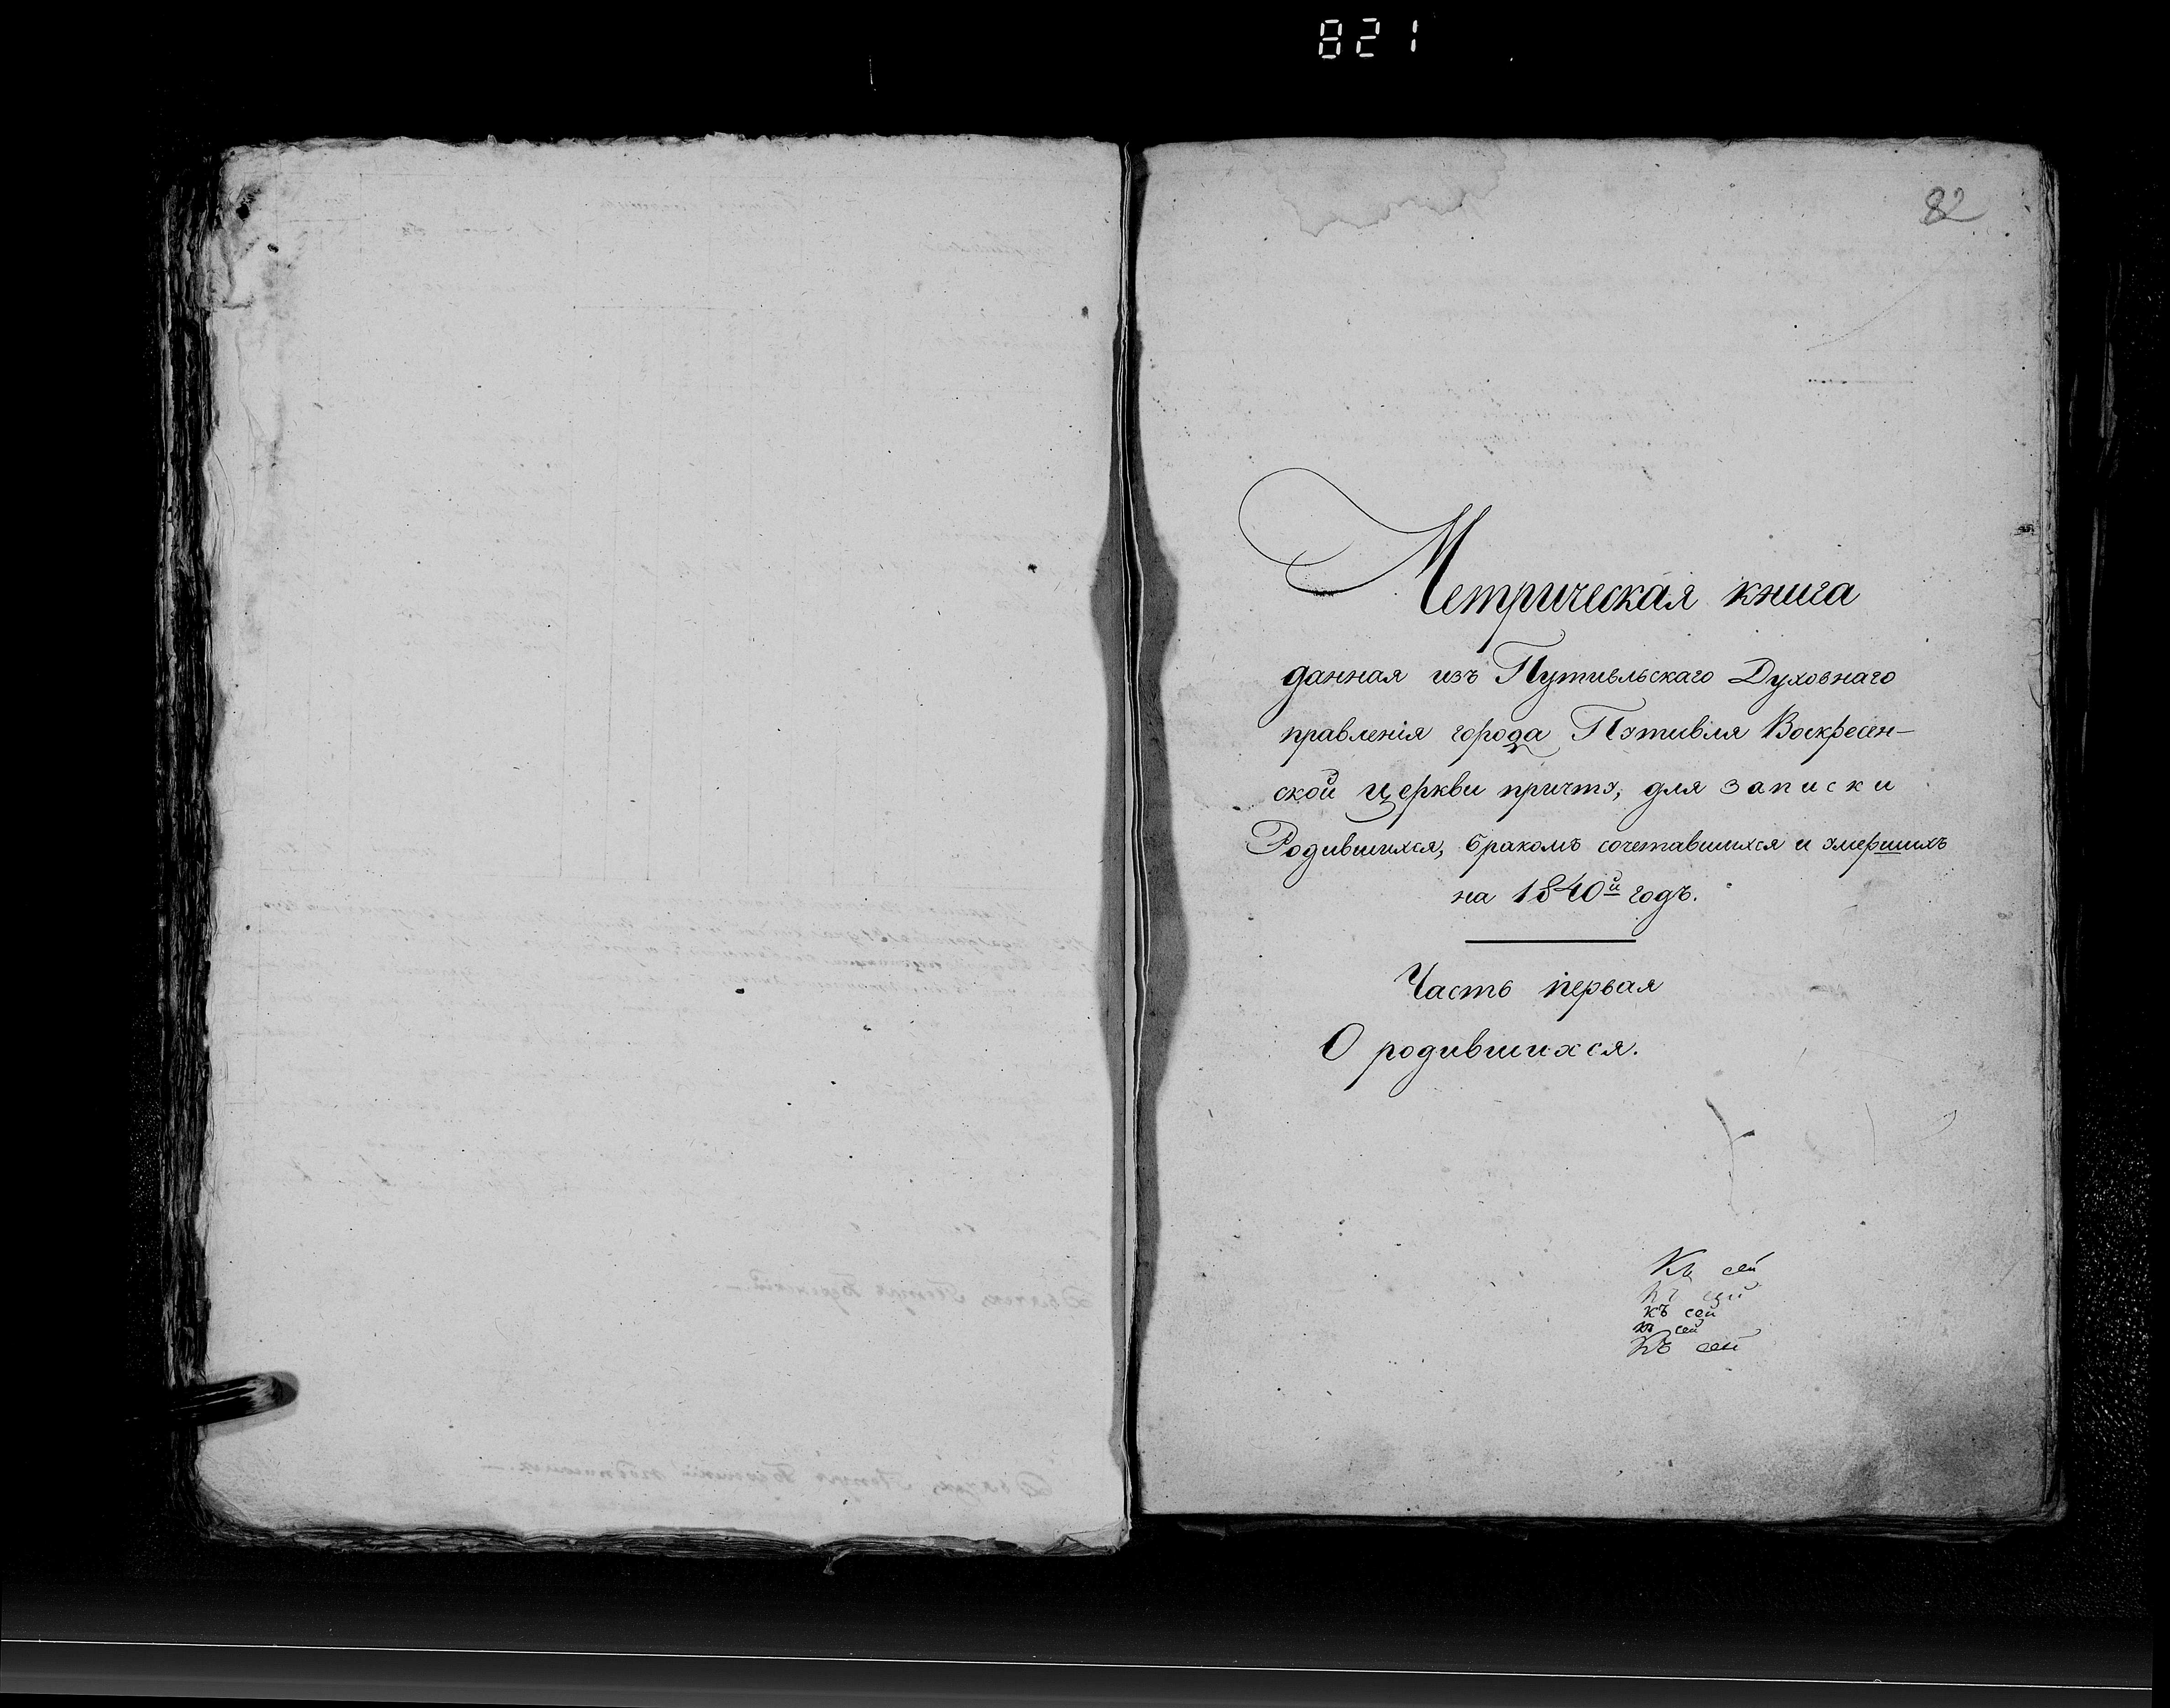 821
82
Метрическая книга
данная изъ Путивльскаго Духовнаго
правленія города Пѹтивля Воскресен-
ской церкви причтѹ, для записки
Родившихся, бракомъ сочетавшихся и ѹмершихъ
на 1840й годъ.
Часть первая
О родившихся.
Къ сей
Къ сей
къ сей
къ сей
Къ сей